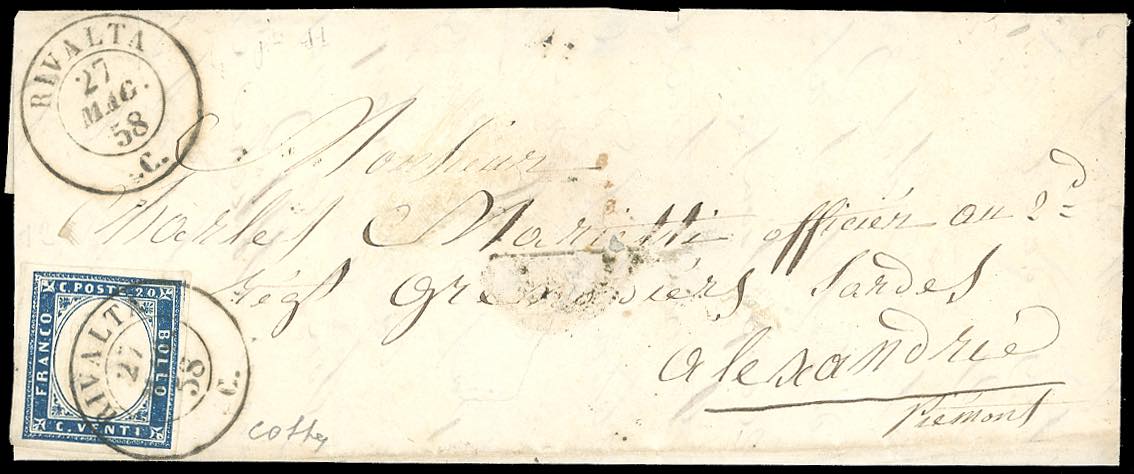 RIVALTA
27
MAG.
58
C.
Monsieur
Charles Marietti officier au 2d
Régt grenadiers Sardes
Alexandrie
Piémont
C. POSTE 20
FRANCO
BOLLO
C. VENTI
RIVALTA
27
58
C.